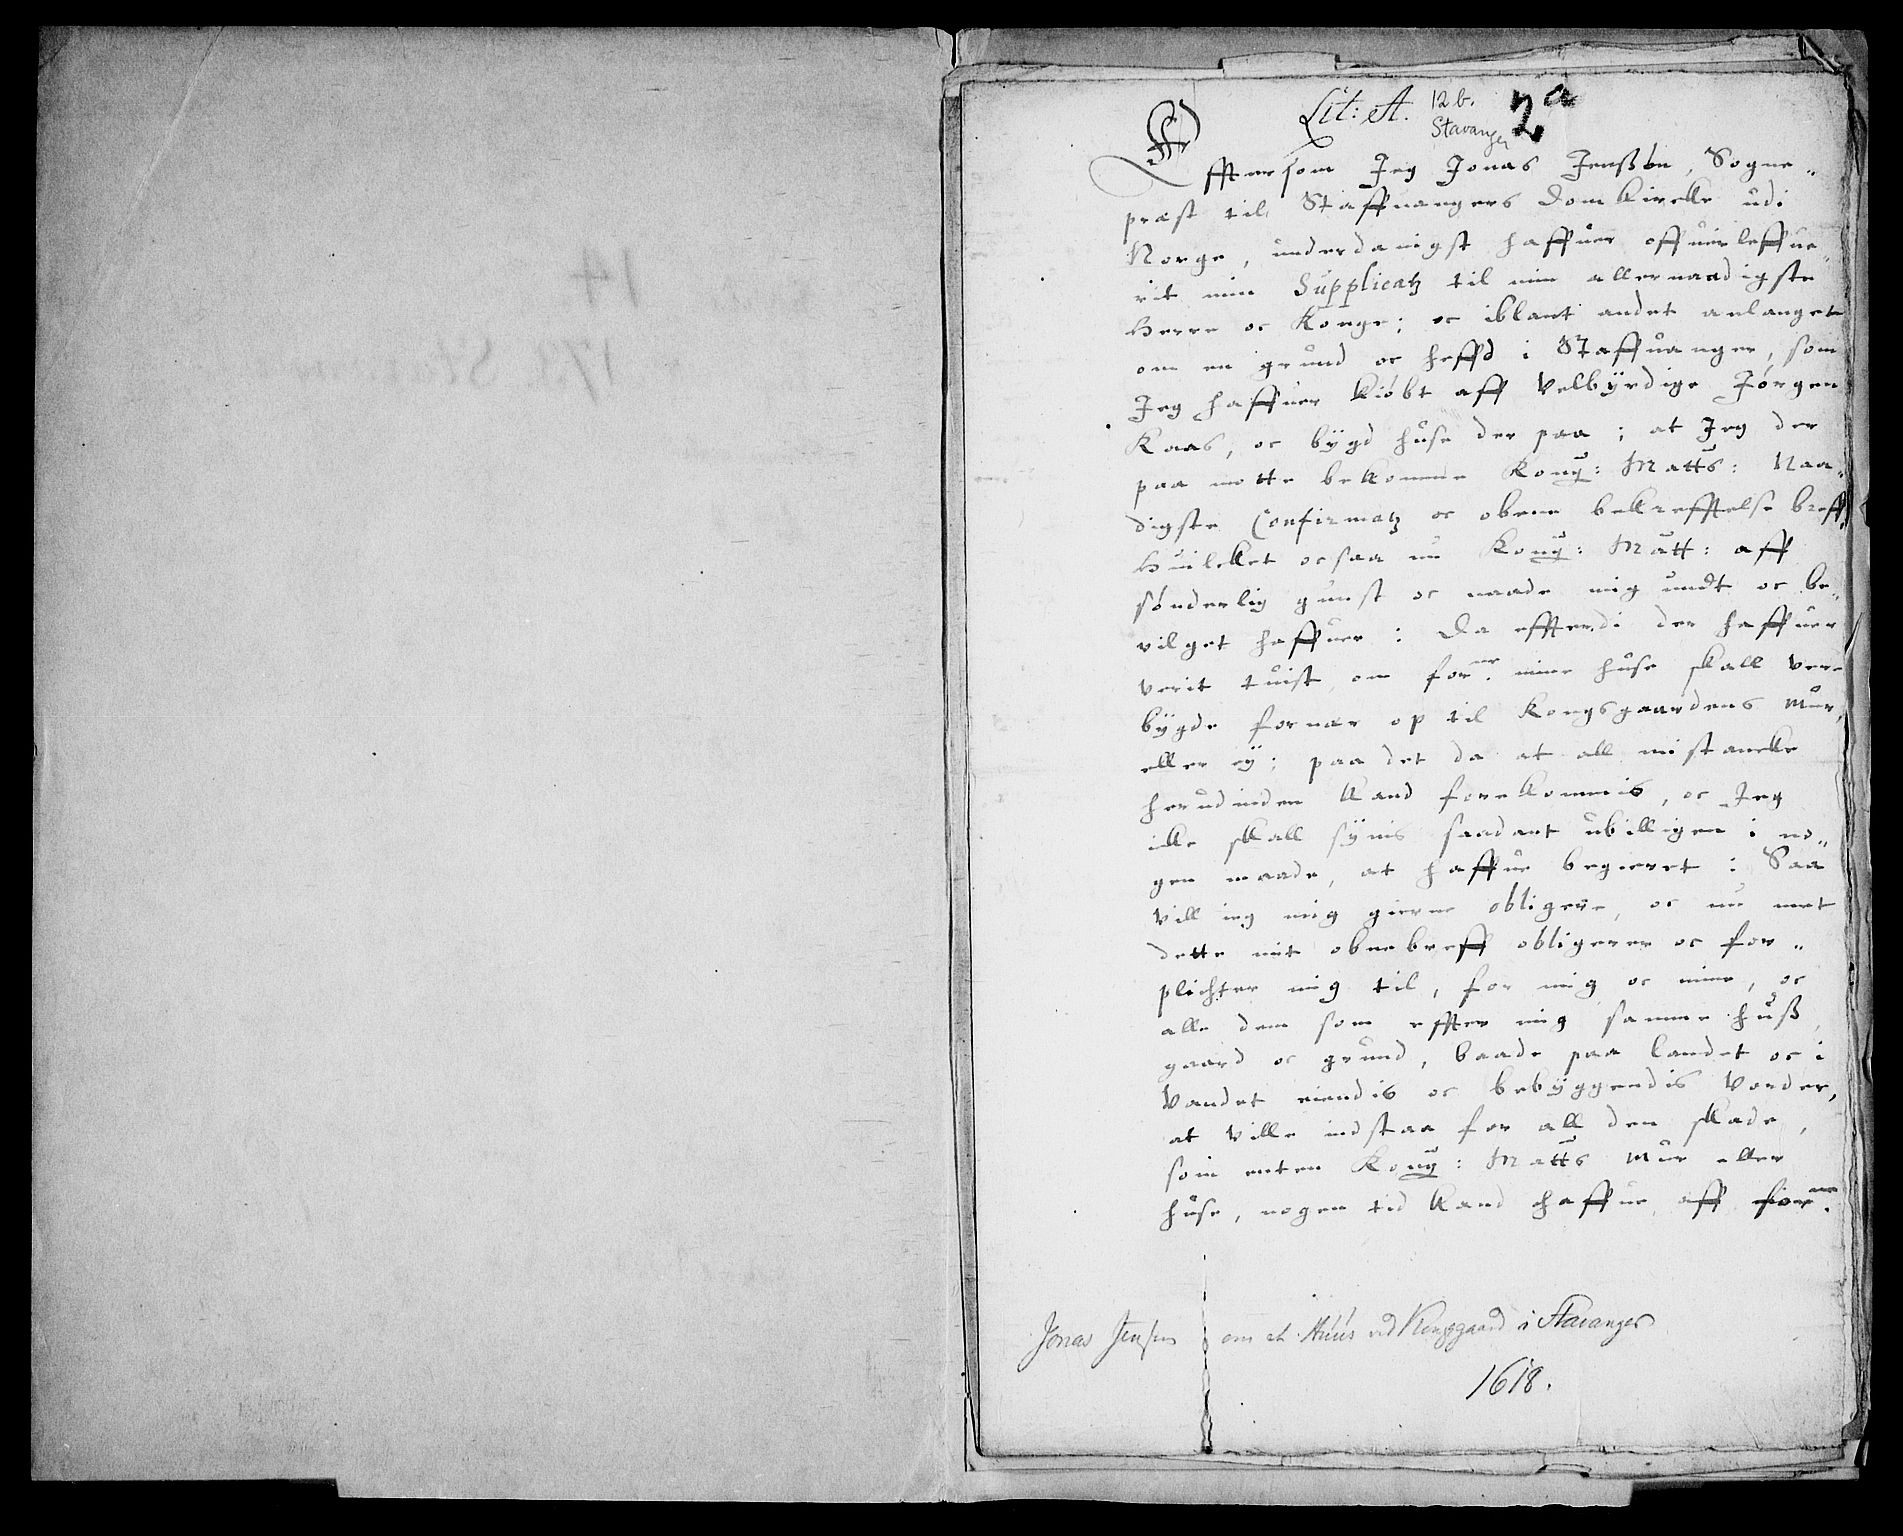 Lit: A. 12 b. 2a
Stavanger
Efftersom Jeg Jonas Jenßøn, Sogne„
præst til Staffuangers Domkircke udi
Norge, underdanigst haffuer offuerleffue„
rit min Supplicatz til min allernaadigste
Herre oc Konge; oc iblant andet anlanget
om en grund oc heffd i Staffuanger, som
Jeg haffuer kiöbt aff Velbÿrdige Jörgen
Kaas, oc bÿgd huse der paa; at Jeg der
paa motte bekomme Kong: Matts: Naa„
digste Confirmatz oc obene bekrefftelse breff
Huilcket ocsaa nu Kong: Matt: aff
sønderlig gunst oc naade mig undt oc be„
vilget haffuer: Da effterdi der haffuer
verit tuist, om forne. mine huse skall vere
bÿgde fornær op til Kongsgaardens Mur,
eller eÿ; paa det da at all mistancke
herudinden kand forekommis, oc Jeg
icke skall sÿnis saadant ubilligen i no„
gen maade, at haffue begieret: Saa
vill ieg mig gierne obligere, oc nu met
dette mit obnebreff obligerer oc for„
plichter mig til, for mig oc mine, oc
alle dem som effter mig samme huß,
gaard oc grund, baade paa landet oc i
Vandet eiendis oc bebÿggendis vorder,
at ville indstaa for all den skade,
som enten Kong: Matts Mur eller
huse, nogen tid kand haffue aff forne.
Jonas Jensen om et Huus ved Kongsgaard i Stavanger
1618.
14